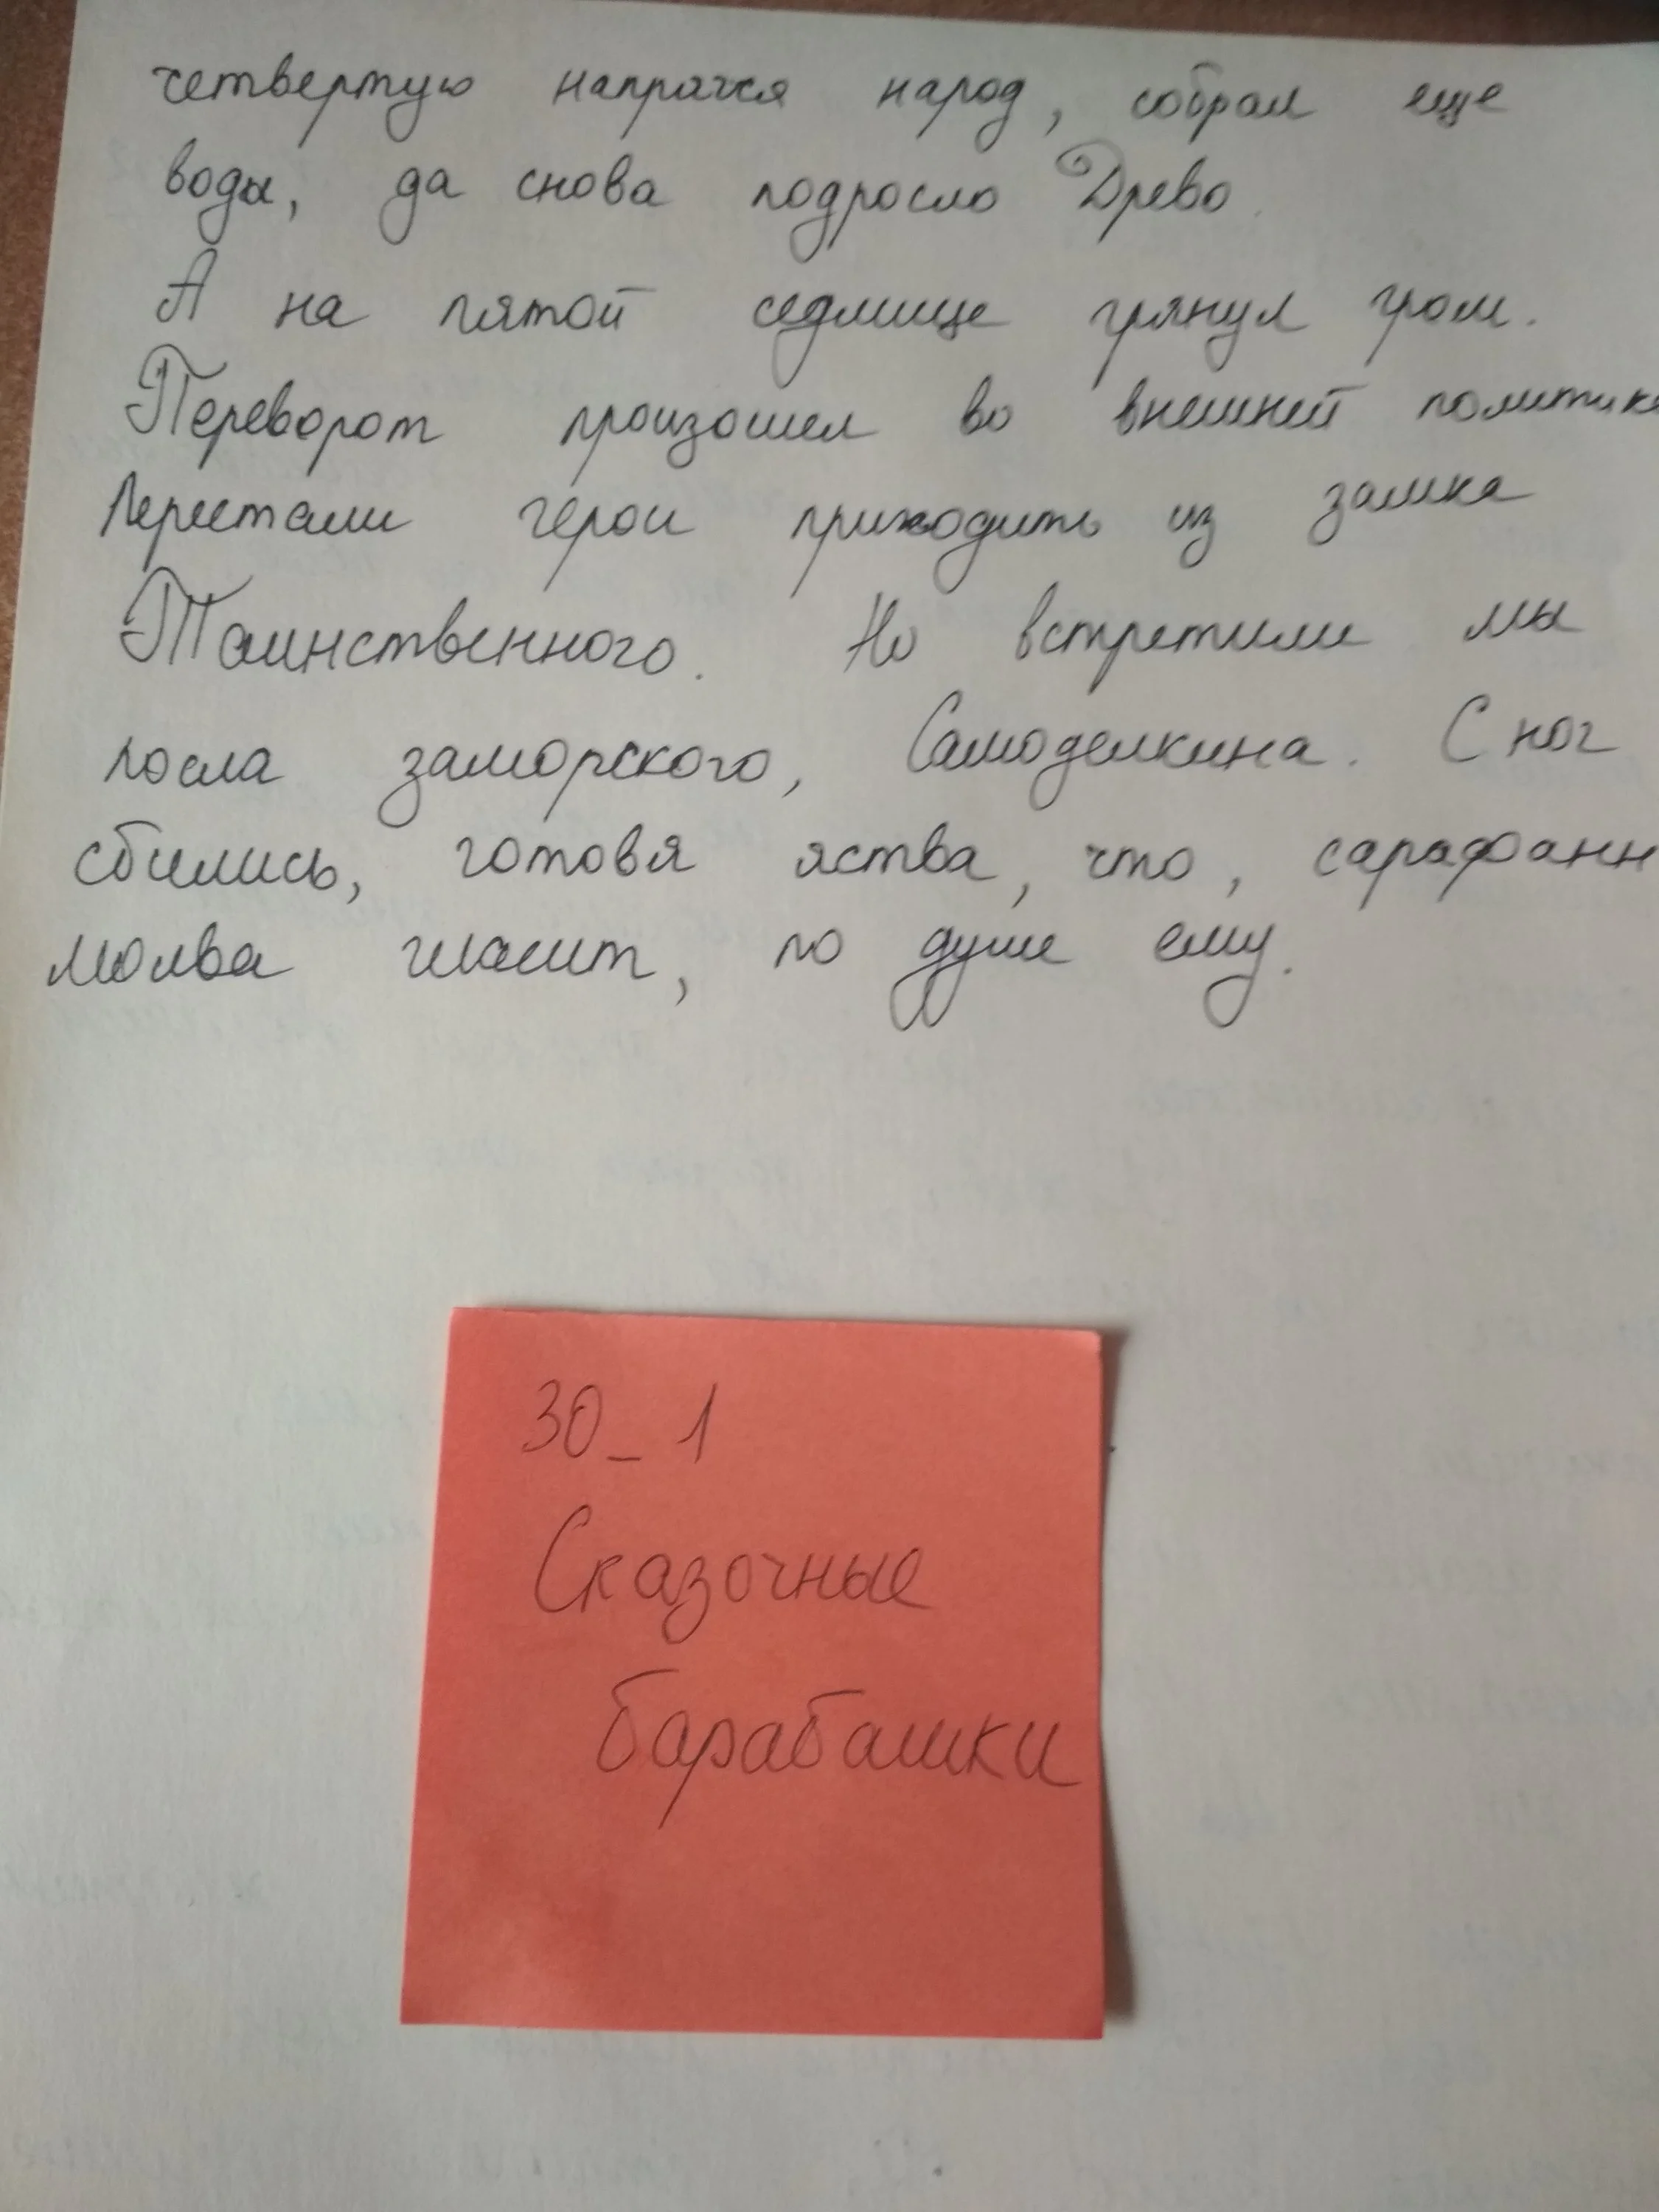 четвертую напрягся народ, собрал еще
воды, да снова подросло Древо.
А на пятой седмице грянул гром.
Переворот произошел во внешней политике
Перестали герои приходить из замка
Таинственного. Но встретили мы
посла заморского, Самоделкина. С ног
сбились, готовя яства, что, сарафанн
молва гласит, по душе ему.
30_1
Сказочные
барабашки